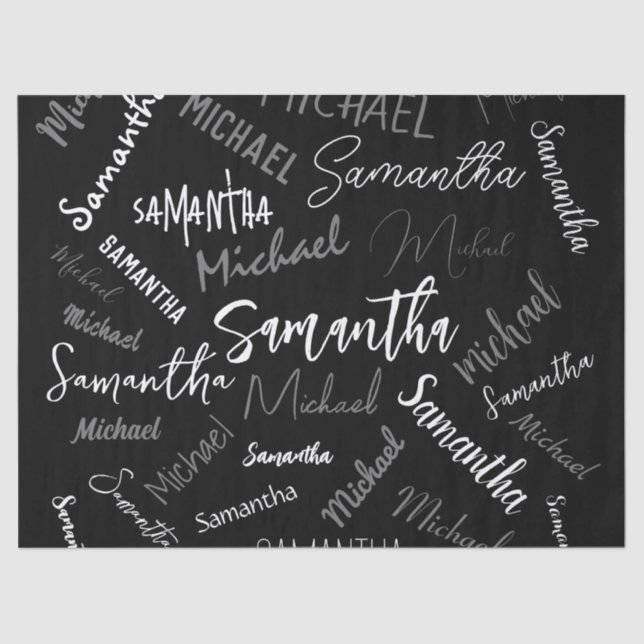 MICHAEL
Michael
Michael
Samantha
MICHAEL
Samantha
Samantha
SAMANTHA
Michael
Michael
SAMANTHA
Michael
Michael
Samantha
Michael
Michael
Samantha
Samantha
Michael
Samantha
Michael
Michael
Michael
Samantha
Michael
Samantha
Samantha
Samantha
Michael
Michael
SAMANTHA